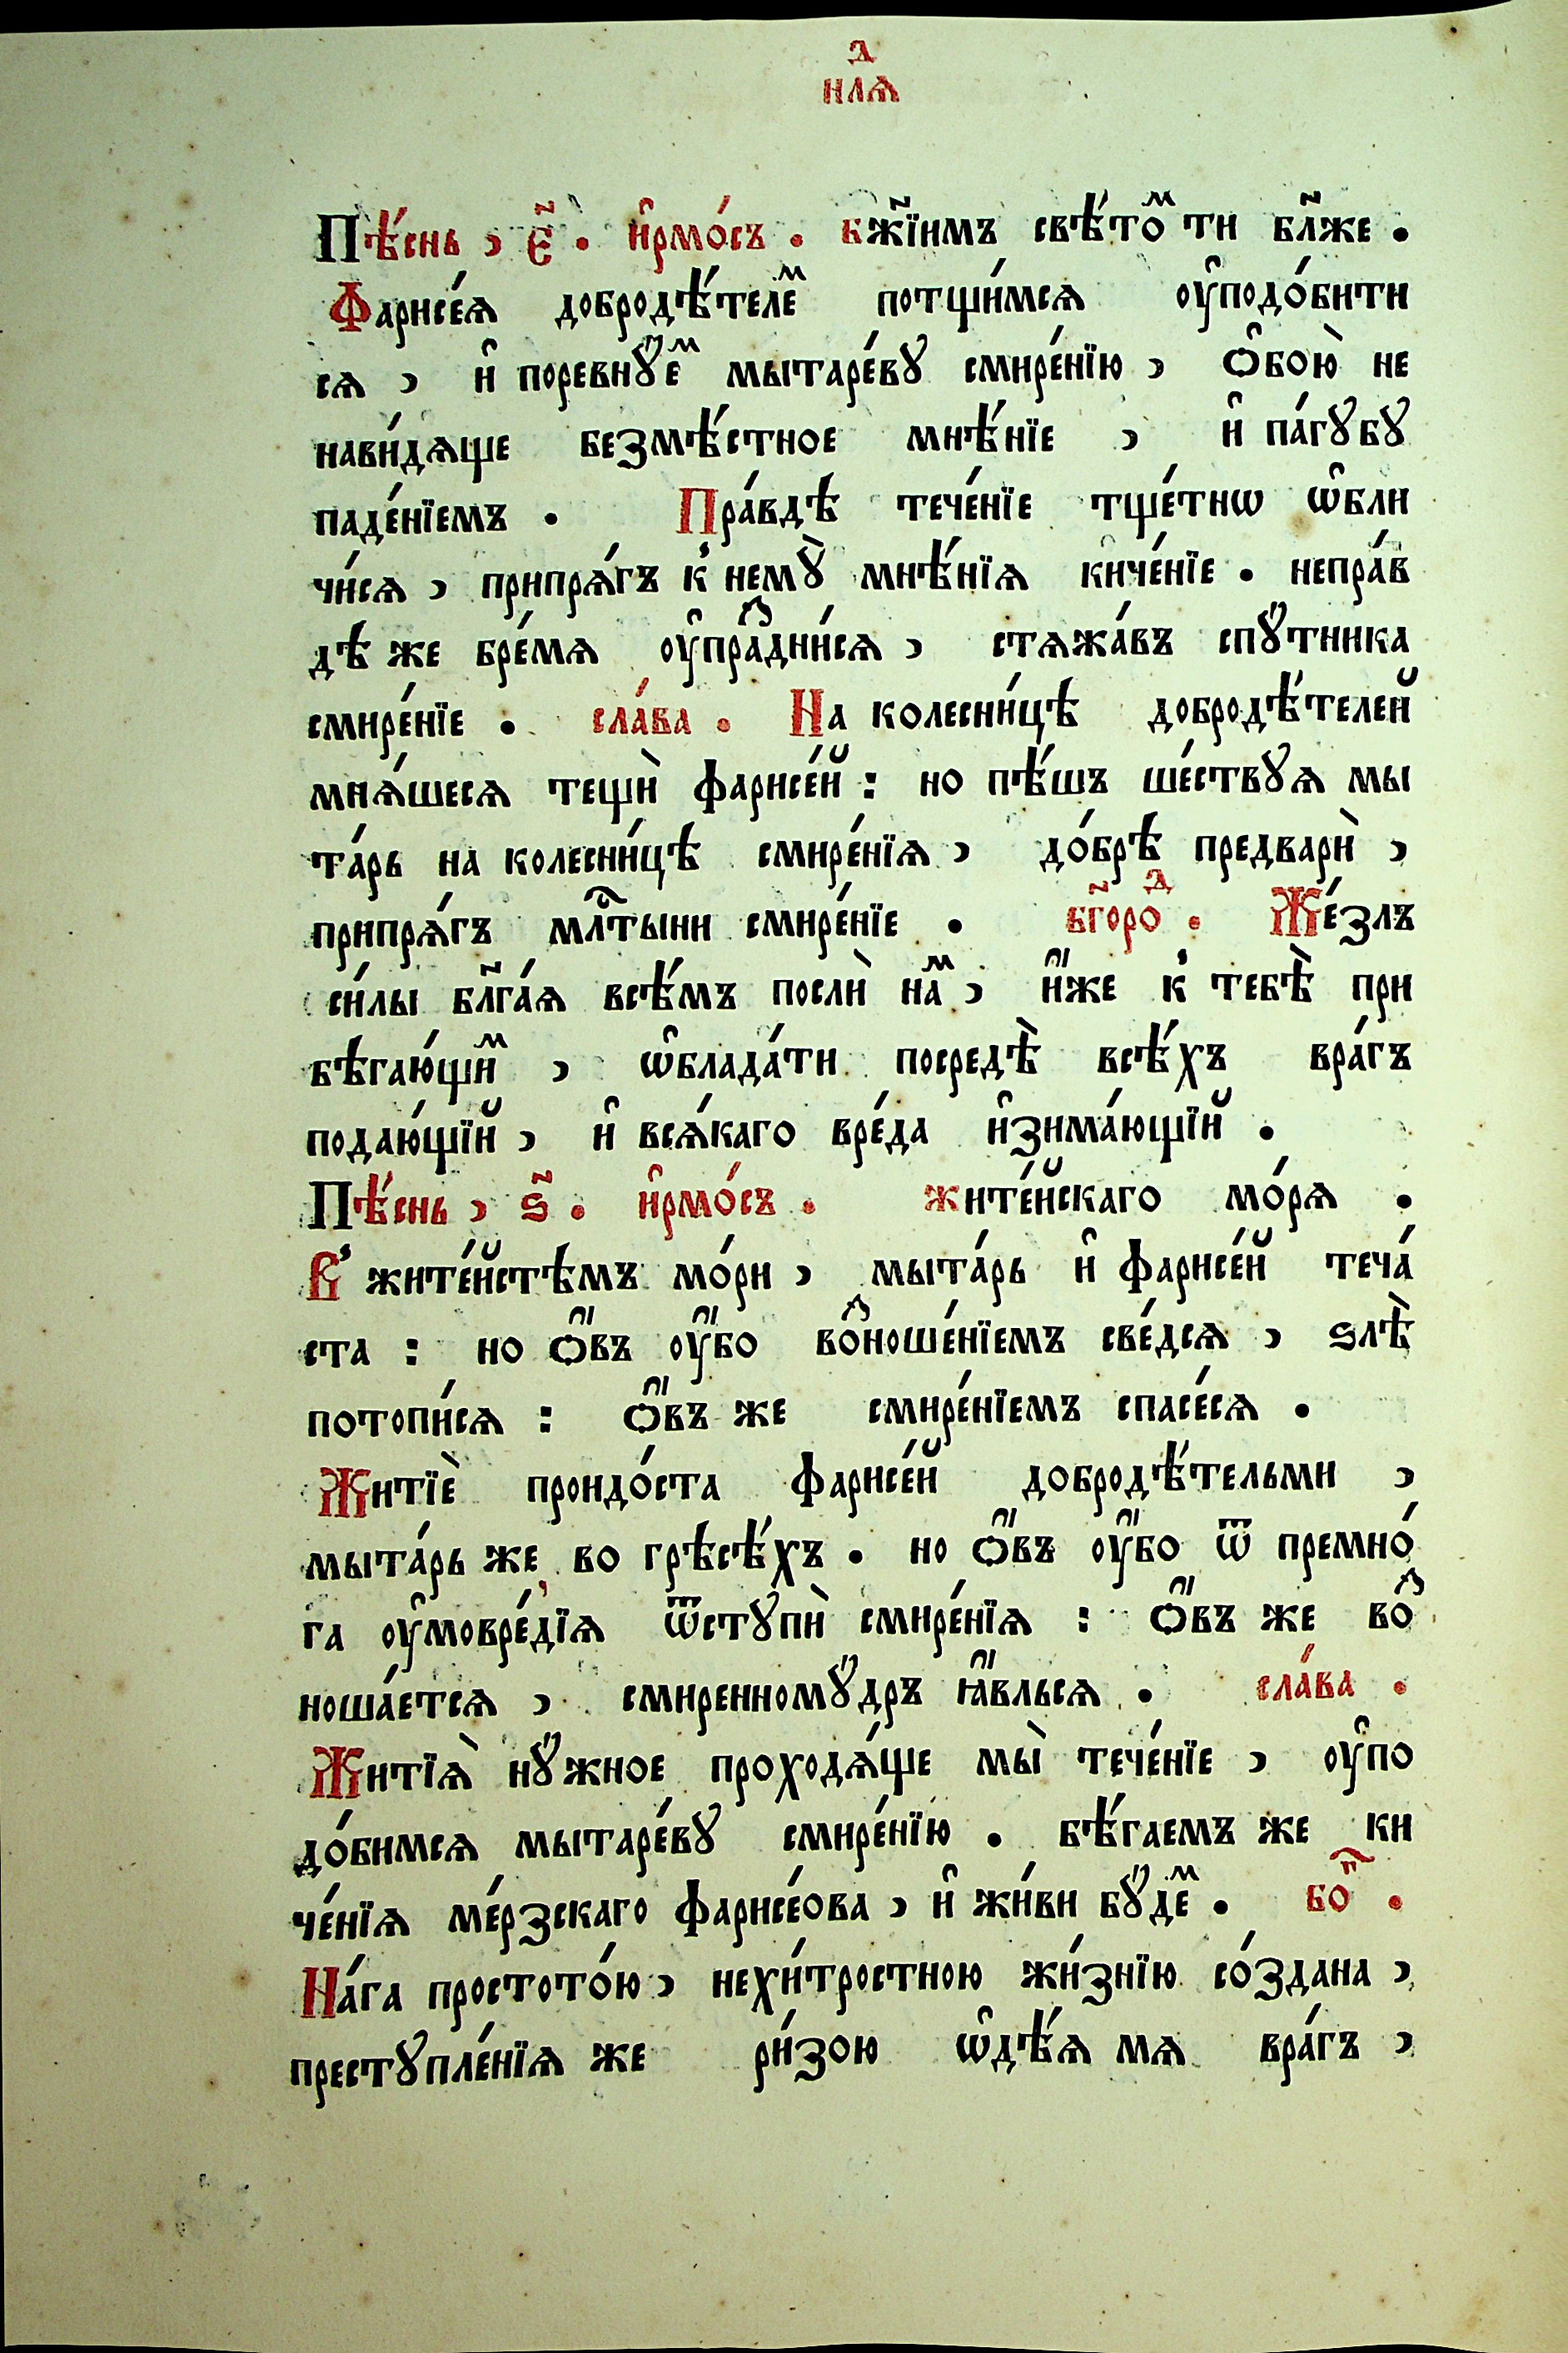 нлѧⷣ
Пѣ́снь , є҃ . і҆рмо́съ . бж҃їимъ свѣ́тоⷨ ти бл҃же .
Фарисе́ѧ добродѣ́телеⷨ потщи́мсѧ ᲂу҆подо́бити
сѧ , и҆ поревнꙋ́еⷨ мытаре́вꙋ смире́нїю , ѻ҆бою̀ не
нави́дѧще безмѣ́стное мнѣ́нїе , и҆ па́гꙋбꙋ
паде́нїемъ . Пра́вдѣ тече́нїе тще́тнѡ ѡ҆бли
чи́сѧ , припрѧ́гъ к̾ немꙋ̀ мнѣ́нїѧ киче́нїе . непра́в
дѣ же бре́мѧ ᲂу҆праⷥдни́сѧ , стѧжа́въ спꙋ́тника
смире́нїе . сла́ва . На колесни́цѣ добродѣ́телей
мнѧ́шесѧ тещѝ фарисе́й : но пѣ́шъ ше́ствꙋѧ мы
та́рь на колесни́цѣ смире́нїѧ , до́брѣ предварѝ ,
припрѧ́гъ млⷭ҇тыни смире́нїе . бг҃ороⷣ . Же́злъ
си́лы бл҃га́ѧ всѣ́мъ послѝ наⷨ , и҆́же к̾ тебѣ̀ при
бѣга́ющиⷨ , ѡ҆блада́ти посредѣ̀ всѣ́хъ вра́гъ
пода́ющїй , и҆ всѧ́каго вре́да и҆зима́ющїй .
Пѣ́снь , ѕ҃ . і҆рмо́съ . жите́йскаго мо́рѧ .
В̾ жите́йстѣмъ мо́ри , мыта́рь и҆ фарисе́й теча́
ста : но ѻ҆́въ ᲂу҆́бо воⷥноше́нїемъ све́дсѧ , ѕлѣ̀
потопи́сѧ : ѻ҆́въ же смире́нїемъ спасе́сѧ .
Житїѐ проидо́ста фарисе́й добродѣ́тельми ,
мыта́рь же во грѣсѣ́хъ . но ѻ҆́въ ᲂу҆́бо ѿ премно́
га ᲂу҆мовре́дїѧ ѿстꙋпѝ смире́нїѧ : ѻ҆́въ же воⷥ
ноша́етсѧ , смиренномꙋ́дръ ꙗ҆́вльсѧ . сла́ва .
Житїѧ̀ нꙋ́жное проходѧ́ще мы̀ тече́нїе , ᲂу҆по
до́бимсѧ мытаре́вꙋ смире́нїю . бѣ́гаемъ же ки
че́нїѧ ме́рзскаго фарисе́ова , и҆ жи́ви бꙋ́деⷨ . боⷢ҇ .
На́га простото́ю , нехи́тростною жи́знїю со́здана ,
престꙋпле́нїѧ же ри́зою ѡ҆дѣ́ѧ мѧ вра́гъ ,